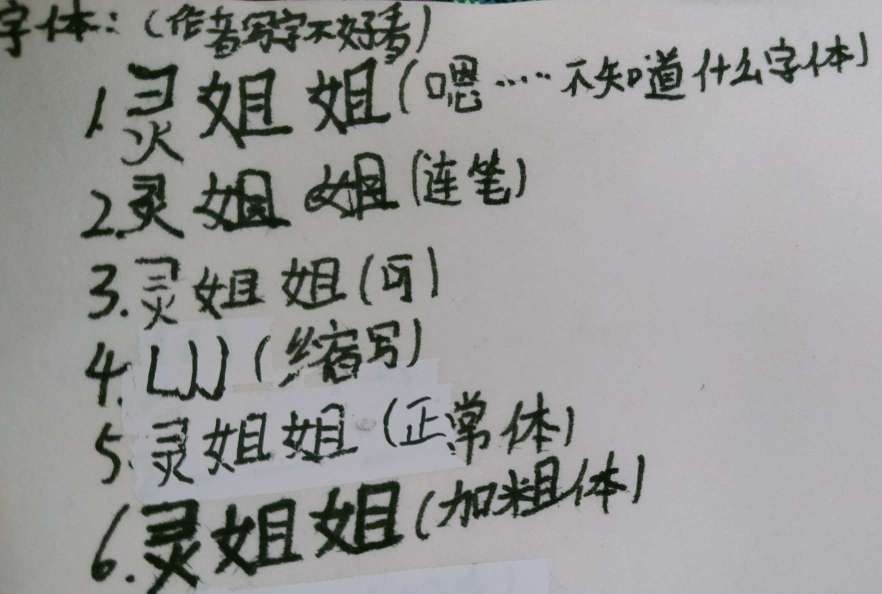 字体:(作者写字不好看)
1.灵姐姐(嗯……不知道什么字体)
2.灵姐姐(连笔)
3.灵姐姐(可)
4.LJJ(缩写)
5.灵姐姐(正常体)
6.灵姐姐(加粗体)